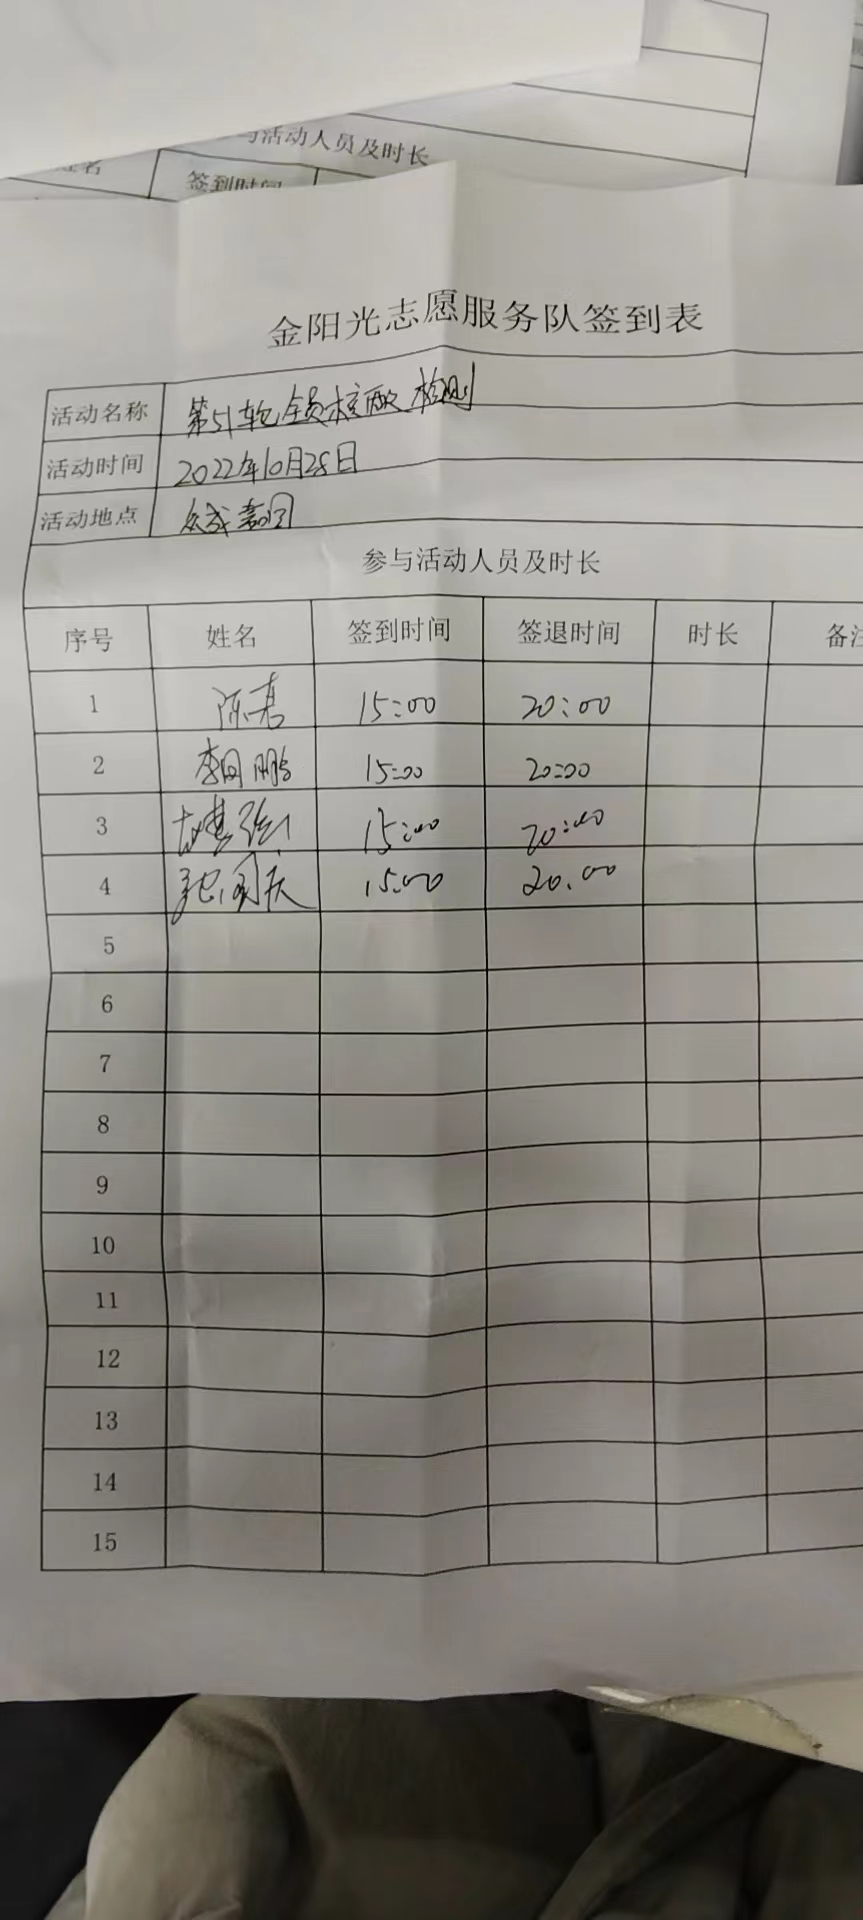 与活动人员及时长
姓名 签到时间
金阳光志愿服务队签到表
活动名称 第51轮全员核酸检测
活动时间 2022年10月28日
活动地点 众成嘉园
参与活动人员及时长
序号 姓名 签到时间 签退时间 时长 备注
1 陈嘉 15:00 20:00
2 李国鹏 15:00 20:00
3 15:00 20:00
4 张国庆 15:00 20.00
5
6
7
8
9
10
11
12
13
14
15